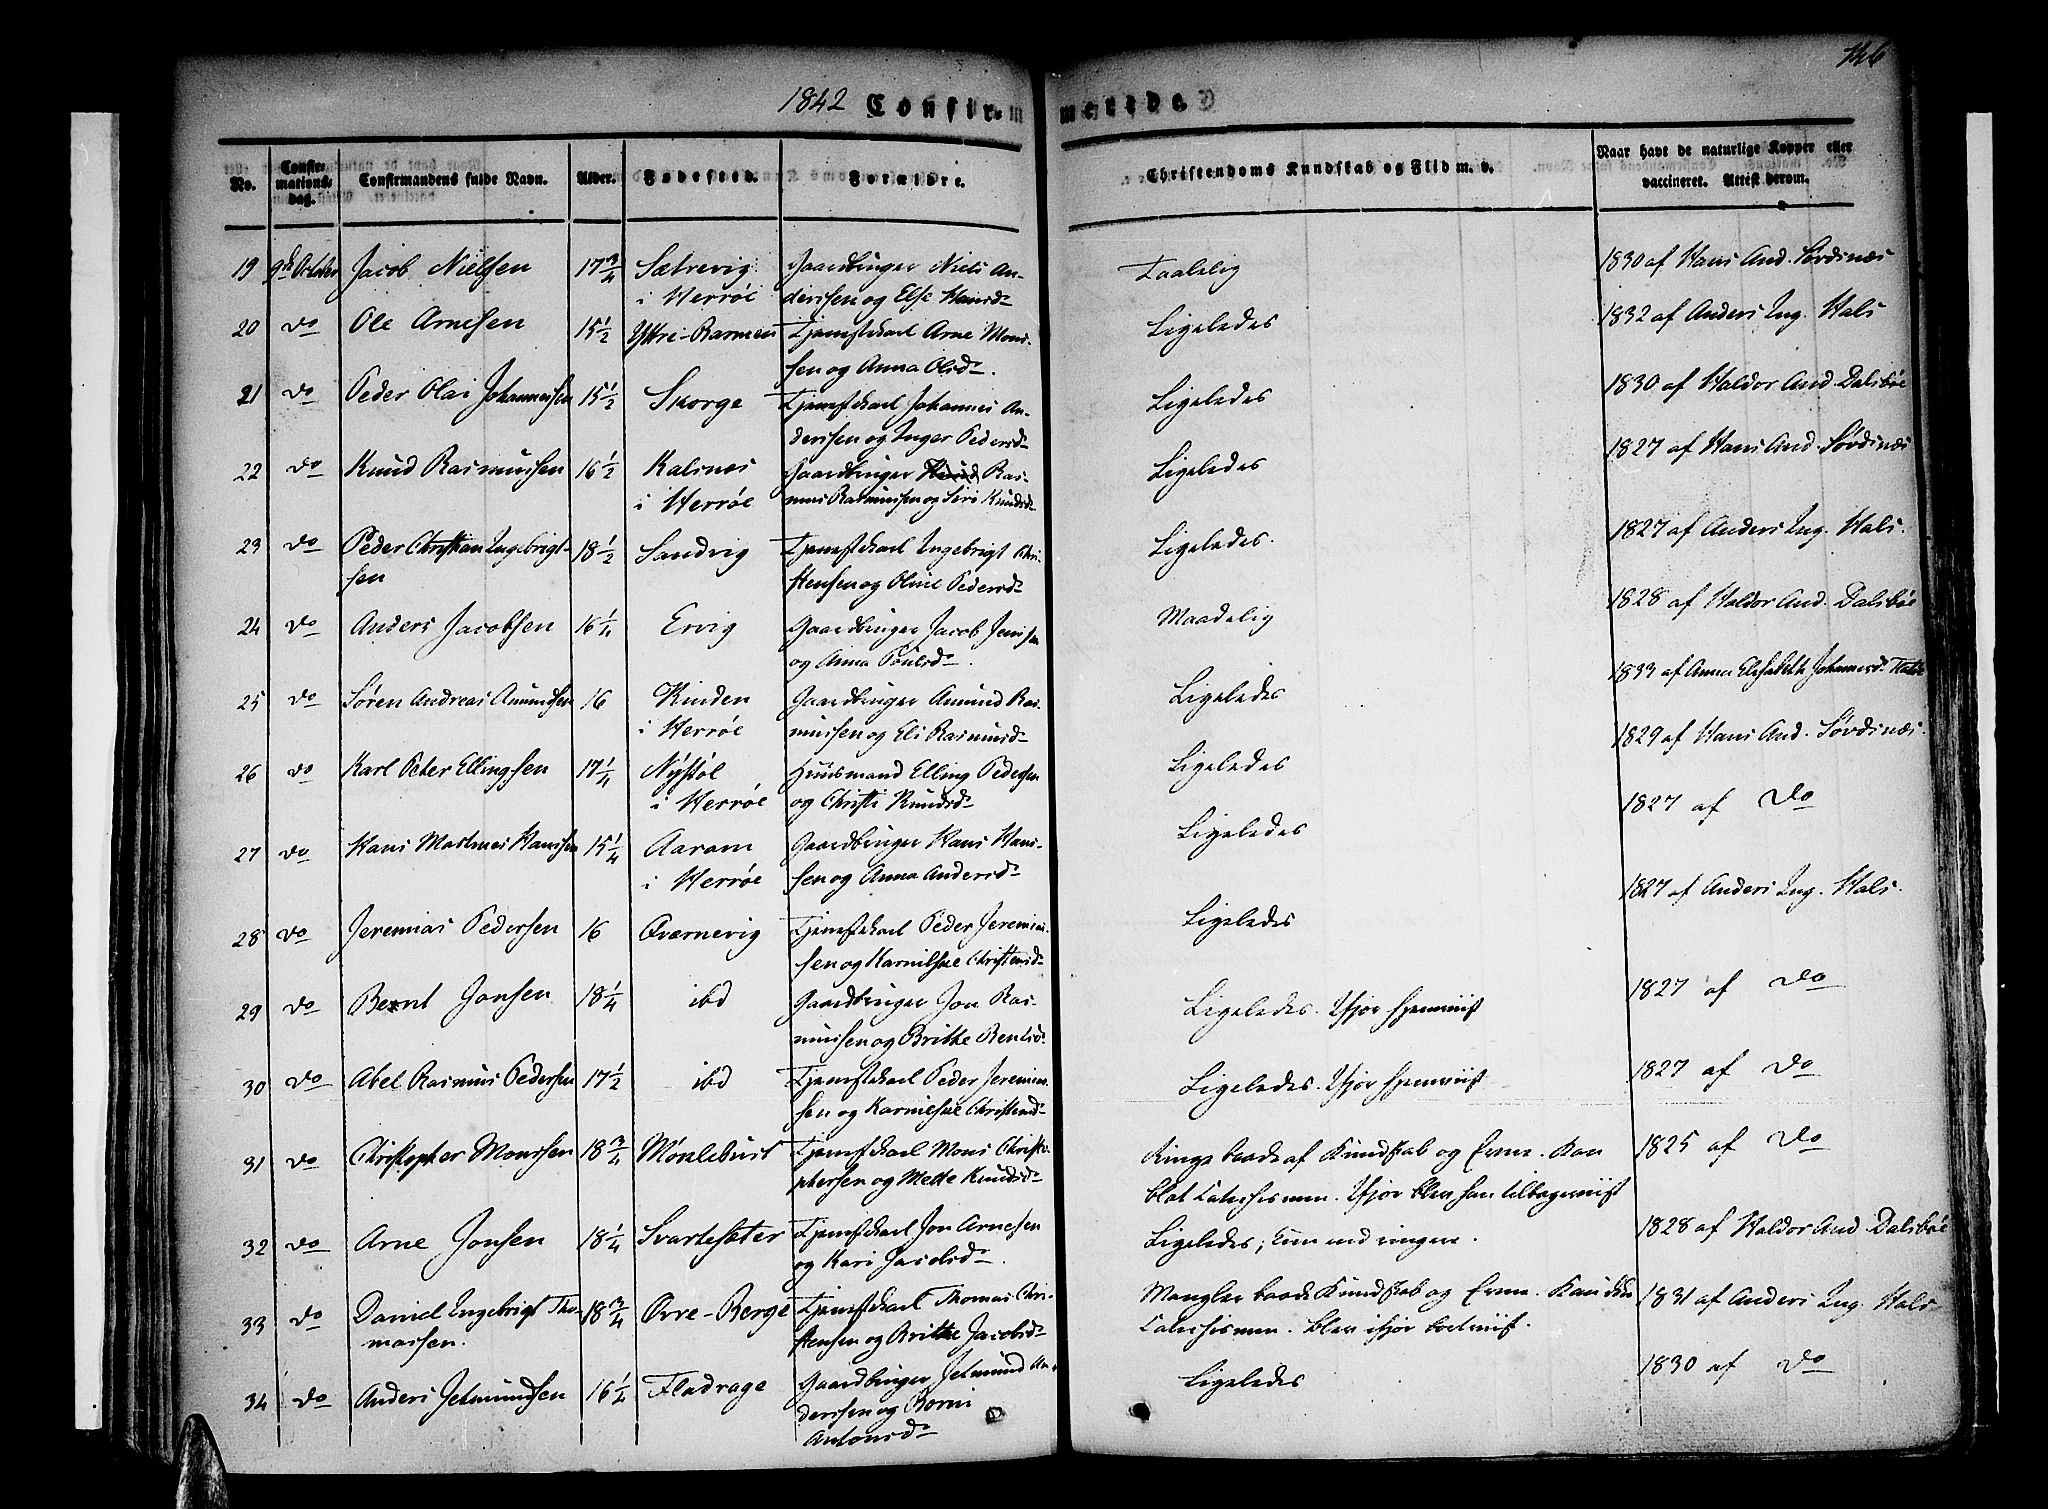 146
1842 Confirmerede.
No. Confirmations-dag. Confirmandens fulde Navn. Alder. Fødested. Forældre. Christendoms Kundskab og Flid m. v. Naar havt de naturlige Kopper eller vaccineret. Attest derom.
19 9de October Jacob Nielsen 17 3/4 Sætrevig i Herrøe Gaardbruger Niels Anderssen og Else Hansd. Taalelig 1830 af Hans And. Sørdsnæs
20 do Ole Arnesen 15 1/2 Yttre-Ramoen Tjenestekarl Arne Monssen og Anna Olsd. Ligeledes 1832 af Anders Ing. Hals
21 do Peder Olai Johannessen 15 1/2 Skorge Tjenestekarl Johannes Anderssen og Inger Pedersd. Ligeledes 1830 af Haldor And. Dalsbøe
22 do Knud Rasmussen 16 1/2 Kalsnes i Herrøe Gaardbruger Knud Rasmus Rasmussen og Siri Knudsd. Ligeledes 1827 af Hans And. Sørdsnæs
23 do Peder Christian Ingebrigtsen 18 1/2 Sandvig Tjenestekarl Ingebrigt Christensen og Oline Pedersd. Ligeledes. 1827 af Anders Ing. Hals.
24 do Anders Jacobsen 16 1/4 Ervig Gaardbruger Jacob Jenssen og Anna Poulsd. Maadelig 1828 af Haldor And. Dalsbøe
25 do Søren Andreas Amundsen 16 Kinden i Herrøe Gaardbruger Amund Rasmussen og Eli Rasmusd. Ligeledes 1833 af Anna Elisabeth Johannesd.
26 do Karl Peter Ellingsen 17 1/4 Nystøl i Herrøe Huusmand Elling Pedersen og Christi Knudsd. Ligeledes 1829 af Hans And. Sørdsnæs.
27 do Hans Martinus Hanssen 15 1/4 Aaram i Herrøe Gaardbruger Hans Hanssen og Anna Andersd. Ligeledes 1827 af do
28 do Jeremias Pedersen 16 Qværnevig Tjenestekarl Peder Jeremiassen og Karnilsue Christensd. Ligeledes 1827 af Anders Ing. Hals.
29 do Bernt Jonsen 18 1/4 ibd Gaardbruger Jon Rasmussen og Brithe Bentsd. Ligeledes. Ifjor hjemviist 1827 af do
30 do Abel Rasmus Pedersen 17 1/2 ibd Tjenestekarl Peder Jeremiassen og Karnilsue Christensd. Ligeledes. Ifjor hjemviist 1827 af do
31 do Christopher Monssen 18 3/4 Monlebust Tjenestekarl Mons Christophersen og Mette Knudsd. Ringe baade af Kundskab og Evne. Kan blot Catechismen. Ifjor blev han tilbageviist 1825 af do
32 do Arne Jonsen 18 1/4 Svartesæter Tjenestekarl Jon Arnesen og Kari Jacobsd. Ligeledes; Evnen end ringere. 1828 af Haldor And Dalsbøe
33 do Daniel Ingebrigt Thomassen. 18 3/4 Øvre-Berge Tjenestekarl Thomas Christensen og Brithe Jacobsd. Mangler baade Kundskab og Evne. Kan Catechismen. blev ifjor bortviist. 1831 af Anders Ing. Hals
34 do Anders Jetmundsen 16 1/4 Fladrage Gaardbruger Jetmund Anderssen og Borni Antonsd. Ligeledes 1830 af do